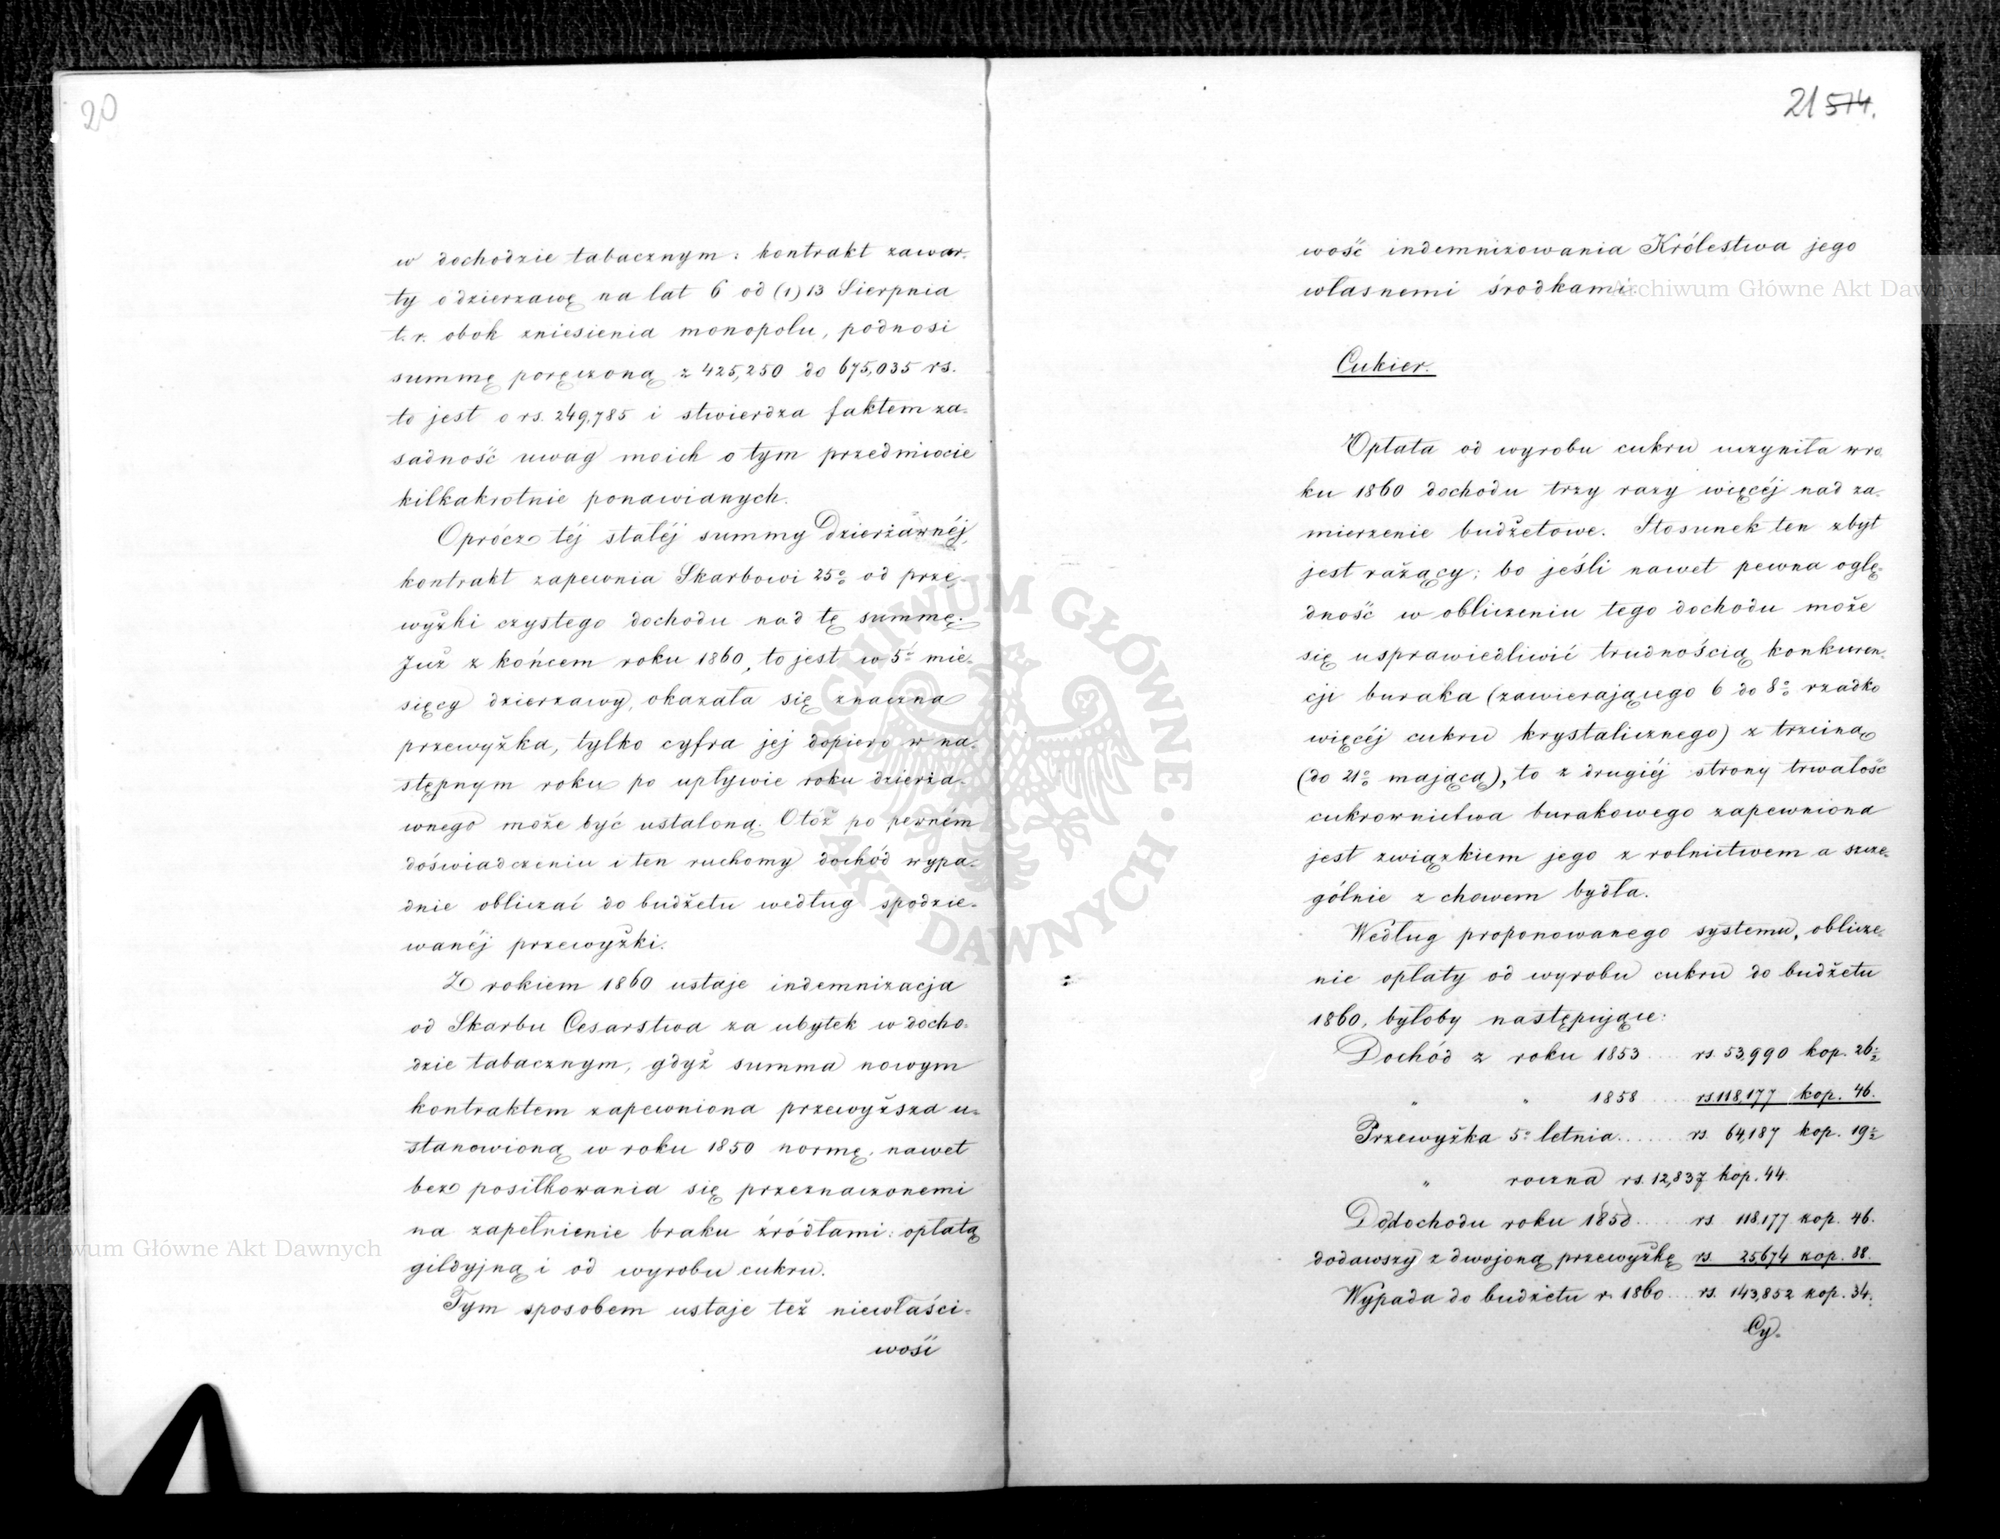 20
w dochodzie tabacznym: kontrakt zawar-
ty o dzierzawę na lat 6 od (1) 13 Sierpnia
t. r. obok zniesienia monopolu, podnosi
summę poręczoną z 425,250 do 675,035 rs.
to jest o rs. 249,785 i stwierdza faktem za-
sadność uwag moich o tym przedmiocie
kilkakrotnie ponawianych.
Oprócz téj stałéj summy Dzierżawnéj,
kontrakt zapewnia Skarbowi 25% od prze-
wyżki czystego dochodu nad tę summę.
Już z końcem roku 1860, to jest w 5c mie-
sięcy dzierzawy, okazała się znaczna
przewyżka, tylko cyfra jej dopiero w na-
stępnym roku po upływie roku dzierża-
wnego może być ustaloną. Otóż po pewném
doświadczeniu i ten ruchomy dochód wypa-
dnie obliczać do budżetu według spodzie-
wanéj przewyżki.
Z rokiem 1860 ustaje indemnizacja
od Skarbu Cesarstwa za ubytek w docho-
dzie tabacznym, gdyż summa nowym
kontraktem zapewniona przewyższa u-
stanowioną w roku 1850 normę, nawet
bez posiłkowania się przeznaczonemi
na zapełnienie braku źródłami: opłatą
gildyjną i od wyrobu cukru.
Tym sposobem ustaje też niewłaści-
wość
21 574.
wość indemnizowania Królestwa jego
własnemi środkami.
Cukier.
Opłata od wyrobu cukru uczyniła w ro
ku 1860 dochodu trzy razy więcéj nad za-
mierzenie budżetowe. Stosunek ten zbyt
jest rażący; bo jeśli nawet pewna oglę-
dność w obliczeniu tego dochodu może
się usprawiedliwić trudnością konkuren-
cji buraka (zawierającego 6 do 8% rzadko
więcéj cukru krystalicznego) z trzciną
(do 21% mającą), to z drugiéj strony trwałość
cukrownictwa burakowego zapewniona
jest związkiem jego z rolnictwem a szcze-
gólnie z chowem bydła.
Według proponowanego systemu, oblicze-
nie opłaty od wyrobu cukru do budżetu
1860, byłoby następujące:
Dochód z roku 1853 .... rs. 53,990 kop. 26½
" " 1858 .... rs. 118,177 kop. 46.
Przewyżka 5c letnia ...... rs. 64,187 kop. 19½
" roczna rs. 12,837 kop. 44.
Do dochodu roku 1858 ..... rs. 118,177 kop. 46.
dodawszy zdwojoną przewyżkę rs. 25674 kop. 88.
Wypada do budżetu r. 1860 ... rs. 143,852 kop. 34.
Cy-
ARCHIWUM GŁÓWNE AKT DAWNYCH
Archiwum Główne Akt Dawnych
Archiwum Główne Akt Dawn